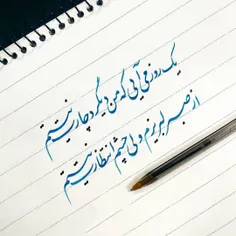 یک روز می آیی که من دیگر دچارت نیستم
از صبر لبریزم ولی چشم انتظارت نیستم